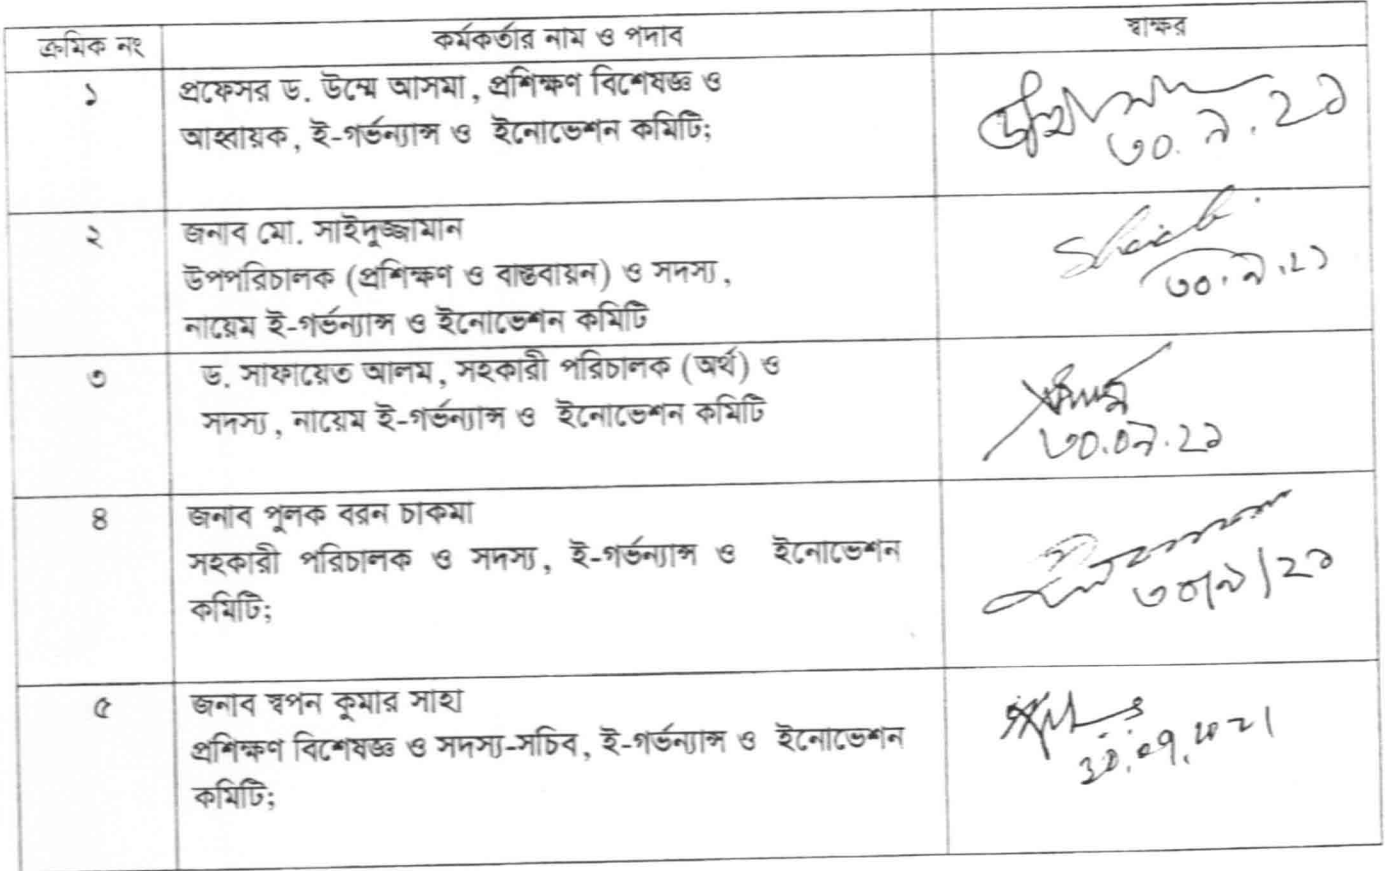 ক্রমিক নং কর্মকর্তার নাম ও পদাব স্বাক্ষর
১ প্রফেসর ড. উম্মে আসমা, প্রশিক্ষণ বিশেষজ্ঞ ও
আহ্বায়ক, ই-গর্ভন্যান্স ও ইনোভেশন কমিটি;
৩০.৯.২১
২ জনাব মো. সাইদুজ্জামান
উপপরিচালক (প্রশিক্ষণ ও বাস্তবায়ন) ও সদস্য,
৩০.৯.২১
নায়েম ই-গর্ভন্যান্স ও ইনোভেশন কমিটি
৩ ড. সাফায়েত আলম, সহকারী পরিচালক (অর্থ) ও
সদস্য, নায়েম ই-গর্ভন্যান্স ও ইনোভেশন কমিটি
৩০.০৯.২১
৪ জনাব পুলক বরন চাকমা
সহকারী পরিচালক ও সদস্য, ই-গর্ভন্যান্স ও ইনোভেশন
কমিটি;
৩০/৯/২১
৫ জনাব স্বপন কুমার সাহা
প্রশিক্ষণ বিশেষজ্ঞ ও সদস্য-সচিব, ই-গর্ভন্যান্স ও ইনোভেশন
30.09.2021
কমিটি;